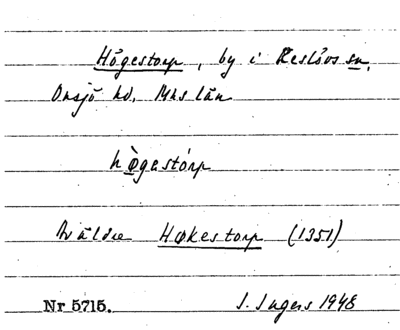 Högestorp, by i Reslövs sn,
Onsjö hd, Mhs län
hø̀gestórp
äldre Høkestorp (1351)
Nr 5715. I. Ingers 1948